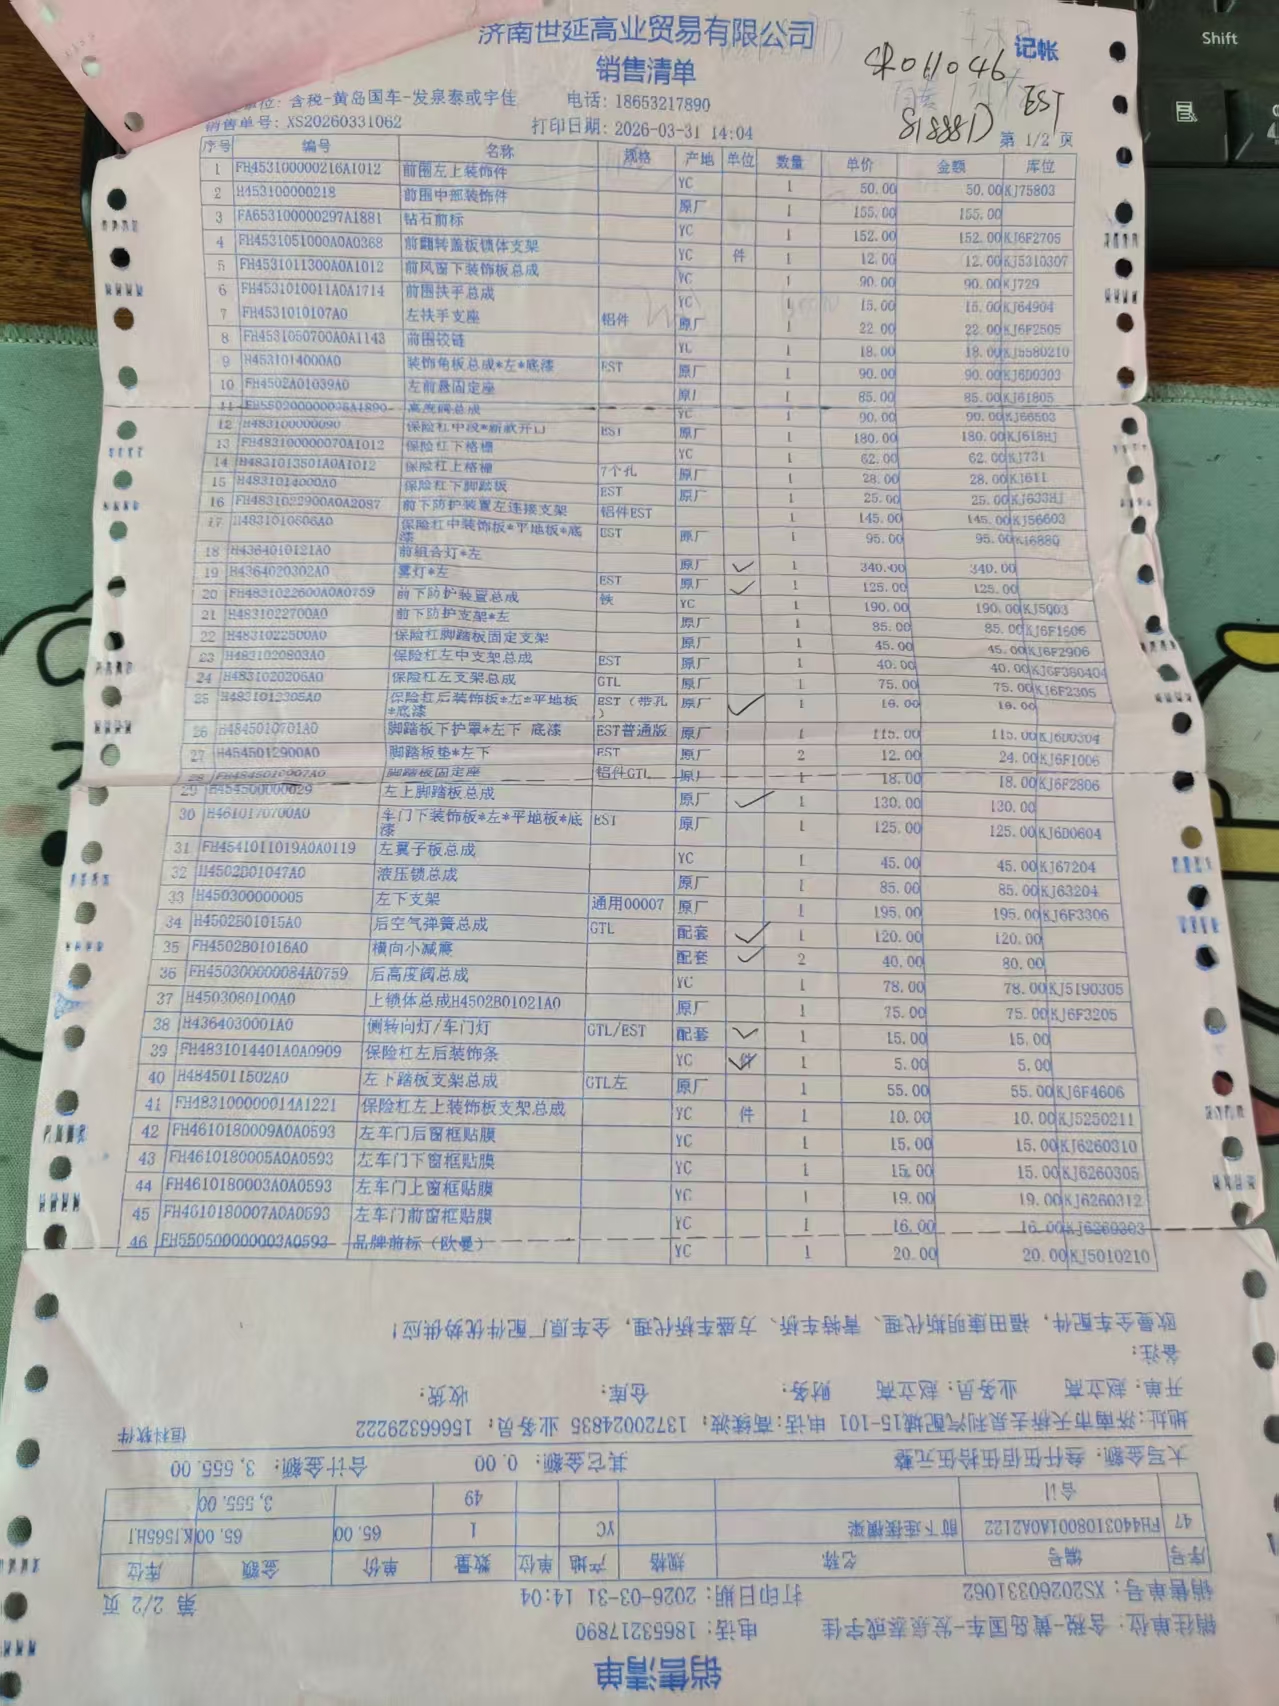 济南世延高业贸易有限公司
记帐
销售清单
SR011046
EST
S1888D
单位: 含税-黄岛国车-发泉泰或宇佳 电话: 18653217890
销售单号: XS20260331062 打印日期: 2026-03-31 14:04 第 1/2 页
序号 编号 名称 规格 产地 单位 数量 单价 金额 库位
1 FH453100000216A1012 前围左上装饰件 YC 1 50.00 50.00 KJ75803
2 H453100000218 前围中部装饰件 原厂 1 155.00 155.00
3 FA653100000297A1881 钻石前标 YC 1 152.00 152.00 KJ6F2705
4 FH4531051000A0A0368 前翻转盖板锁体支架 YC 件 1 12.00 12.00 KJ5310307
5 FH4531011300A0A1012 前风窗下装饰板总成 YC 1 90.00 90.00 KJ729
6 FH4531010011A0A1714 前围扶手总成 YC 1 15.00 15.00 KJ64904
7 FH4531010107A0 左扶手支座 铝件 原厂 1 22.00 22.00 KJ6F2505
8 FH4531050700A0A1143 前围铰链 YL 1 18.00 18.00 KJ5580210
9 H4531014000A0 装饰角板总成*左*底漆 EST 原厂 1 90.00 90.00 KJ6D0303
10 FH4502A01039A0 左前悬固定座 原厂 1 85.00 85.00 KJ61805
11 FH550200000035A1890 高度阀总成 YC 1 90.00 90.00 KJ66503
12 H483100000090 保险杠中段*新款开口 EST 原厂 1 180.00 180.00 KJ618HJ
13 FH483100000070A1012 保险杠下格栅 YC 1 62.00 62.00 KJ731
14 H4831013501A0A1012 保险杠上格栅 7个孔 原厂 1 28.00 28.00 KJ611
15 H4831014000A0 保险杠下脚踏板 EST 原厂 1 25.00 25.00 KJ633HJ
16 FH4831022900A0A2087 前下防护装置左连接支架 铝件EST 1 145.00 145.00 KJ56603
17 H4831010606A0 保险杠中装饰板*平地板*底漆 EST 原厂 1 95.00 95.00 KJ6880
18 H4364010121A0 前组合灯*左 原厂 1 340.00 340.00
19 H4364020302A0 雾灯*左 EST 原厂 1 125.00 125.00
20 FH4831022600A0A0759 前下防护装置总成 铁 YC 1 190.00 190.00 KJ5Q03
21 H4831022700A0 前下防护支架*左 原厂 1 85.00 85.00 KJ6F1606
22 H4831022500A0 保险杠脚踏板固定支架 原厂 1 45.00 45.00 KJ6F2906
23 H4831020803A0 保险杠左中支架总成 EST 原厂 1 40.00 40.00 KJ6F380404
24 H4831020206A0 保险杠左支架总成 GTL 原厂 1 75.00 75.00 KJ6F2305
25 H4831012305A0 保险杠后装饰板*左*平地板*底漆 EST（带孔） 原厂 1 16.00 16.00
26 H4845010701A0 脚踏板下护罩*左下 底漆 EST普通版 原厂 1 115.00 115.00 KJ6D0304
27 H4545012900A0 脚踏板垫*左下 EST 原厂 2 12.00 24.00 KJ6F1006
28 FH4845010907A0 脚踏板固定座 铝件GTL 原厂 1 18.00 18.00 KJ6F2806
29 H454500000029 左上脚踏板总成 原厂 1 130.00 130.00
30 H4610170700A0 车门下装饰板*左*平地板*底漆 EST 原厂 1 125.00 125.00 KJ6D0604
31 FH4541011019A0A0119 左翼子板总成 YC 1 45.00 45.00 KJ67204
32 H4502B01047A0 液压锁总成 原厂 1 85.00 85.00 KJ63204
33 H450300000005 左下支架 通用00007 原厂 1 195.00 195.00 KJ6F3306
34 H4502B01015A0 后空气弹簧总成 GTL 配套 1 120.00 120.00
35 FH4502B01016A0 横向小减震 配套 2 40.00 80.00
36 FH450300000084A0759 后高度阀总成 YC 1 78.00 78.00 KJ5190305
37 H4503080100A0 上锁体总成H4502B01021A0 原厂 1 75.00 75.00 KJ6F3205
38 H4364030001A0 侧转向灯/车门灯 GTL/EST 配套 1 15.00 15.00
39 FH4831014401A0A0909 保险杠左后装饰条 YC 件 1 5.00 5.00
40 H4845011502A0 左下踏板支架总成 GTL左 原厂 1 55.00 55.00 KJ6F4606
41 FH483100000014A1221 保险杠左上装饰板支架总成 YC 件 1 10.00 10.00 KJ5250211
42 FH4610180009A0A0593 左车门后窗框贴膜 YC 1 15.00 15.00 KJ6260310
43 FH4610180005A0A0593 左车门下窗框贴膜 YC 1 15.00 15.00 KJ6260305
44 FH4610180003A0A0593 左车门上窗框贴膜 YC 1 19.00 19.00 KJ6260312
45 FH4610180007A0A0593 左车门前窗框贴膜 YC 1 16.00 16.00 KJ6260303
46 FH550500000003A0593 品牌前标（欧曼） YC 1 20.00 20.00 KJ5010210
销售清单
销往单位: 含税-黄岛国车-发泉泰或宇佳 电话: 18653217890
销售单号: XS20260331062 打印日期: 2026-03-31 14:04 第 2/2 页
序号 编号 名称 规格 产地 单位 数量 单价 金额 库位
47 FH4403108001A0A2122 前下连接横梁 YC 1 65.00 65.00 KJ565HJ
合计 49 3,555.00
大写金额: 叁仟伍佰伍拾伍元整 其它金额: 0.00 合计金额: 3,555.00
地址:济南市天桥去泉利汽配城15-101 电话:高续波: 13720024835 业务员: 15666329222 恒科软件
开单: 赵立高 业务员: 赵立高 财务: 仓库: 收货:
备注:
欧曼全车配件, 福田康明斯代理、青特车桥、方盛车桥代理, 全车原厂配件优势供应!
Shift